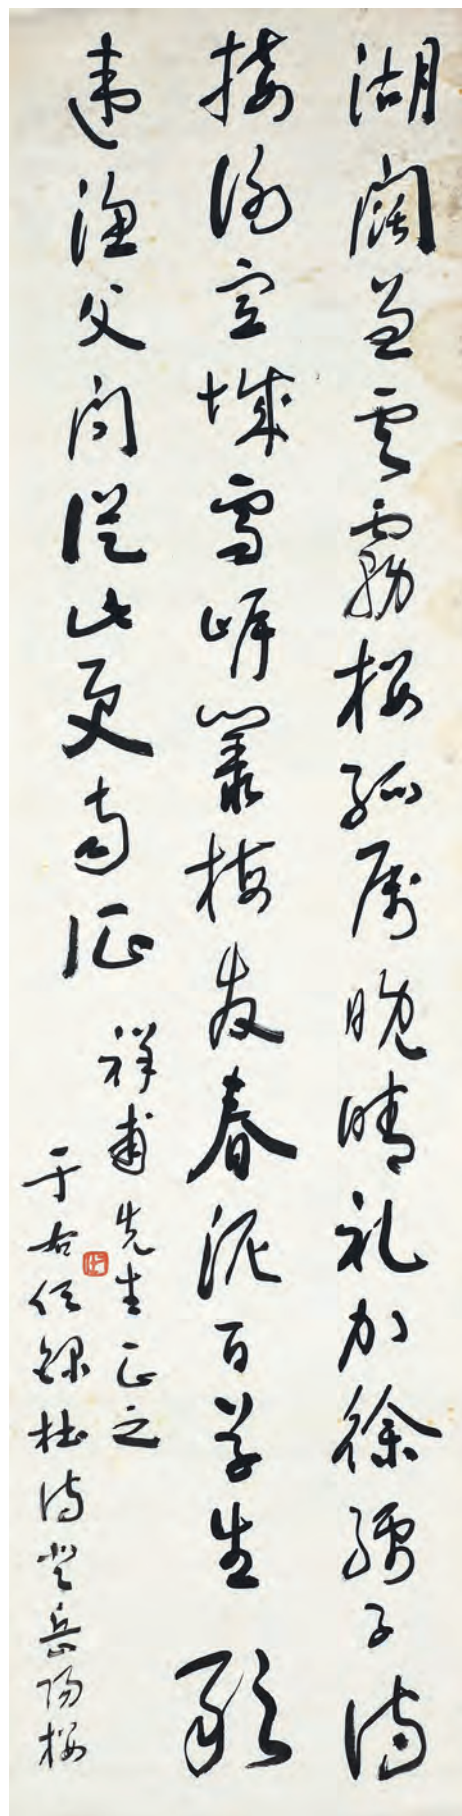 湖闊兼雲霧樓孤屬晚晴礼加徐孺子詩
接謝宣城雪岸叢梅發春泥百草生敢
違漁父問從此更南征
祥甫先生正之
于右任錄杜詩登岳陽樓